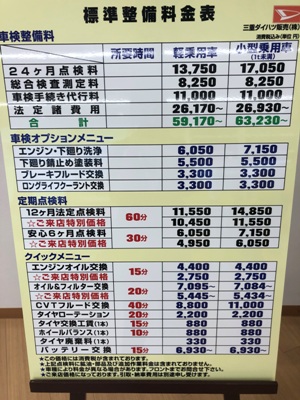 標準整備料金表
三重ダイハツ販売(株)
消費税込み(単位:円)
車検整備料 所要時間 軽乗用車 小型乗用車
(1t未満)
24ヶ月点検料 13,750 17,050
総合検査測定料 8,250 8,250
車検手続き代行料 11,000 11,000
法定諸費用 26,170～ 26,930～
合計 59,170～ 63,230～
車検オプションメニュー
エンジン・下廻り洗浄 6,050 7,150
下廻り錆止め塗装料 5,500 5,500
ブレーキフルード交換 3,300 3,300
ロングライフクーラント交換 3,300 3,300
定期点検料
12ヶ月法定点検料 60分 11,550 14,850
☆ご来店特別価格 10,450 11,550
安心6ヶ月点検料 30分 6,050 7,150
☆ご来店特別価格 4,950 6,050
クイックメニュー
エンジンオイル交換 15分 4,400 4,400
☆ご来店特別価格 2,750 2,750
オイル&フィルター交換 20分 7,095～ 7,084～
☆ご来店特別価格 5,445～ 5,434～
CVTフルード交換 40分 8,800 11,000
タイヤローテーション 20分 2,200 2,200
タイヤ交換工賃(1本) 15分 880 880
ホイールバランス(1本) 10分 880 880
タイヤ廃棄料(1本) 330 330
バッテリー交換 15分 6,930～ 6,930～
★この価格には消費税が含まれております。
★上記点検料に油脂・部品及び追加作業料金は含まれておりません。
★車種により料金が異なる場合があります。フロントまでお問合せ下さい。
★ご来店価格になっております。引取・納車費用は別途申し受けます。